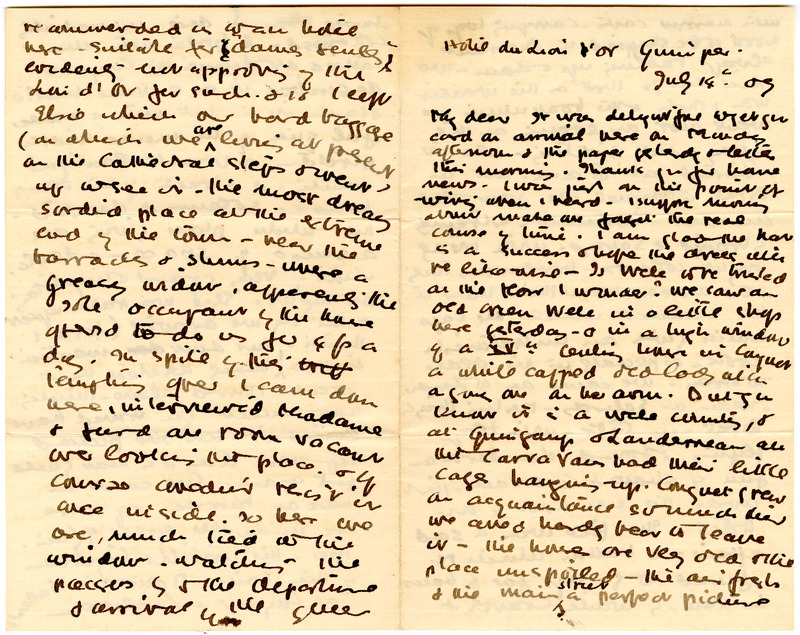 Hotel du Lion d'or Quimper.
July 14th 09
My dear It was delightful to get yr
card on arrival here on Monday
afternoon & the paper yesterday & letter
this morning. Thanks so for home
news. I was just on the point of
writing when I heard. I suppose moving
about makes one forget the real
course of time. I am glad the hat
is a success & hope the dress will
be likewise - Is to be trusted
on the I wonder? We saw an
old green in a little shop
here yesterday - & in a high window
of a XVth century house in Conquet
a white capped old lady with
a grey one on her arm. But you
know it is a country, &
at Guingamp & Landerneau all
the Caravans had their little
cage hanging up. Conquet grew
on acquaintance so much that
we could hardly bear to leave
it - the houses are very old & the
place unspoiled - the air fresh
& the main street a perfect picture
recommended a small hotel
here - suitable for "dames seules"
evidently not approving of the
Lion d'Or for such. So I left
Elsie with our hand baggage
(on which we are living at present)
on the Cathedral steps & went
up to see it - the most dreary
sordid place at the extreme
end of the town - near the
barracks & slums - where a
greasy widow, apparently the
sole occupant of the house
offered to do us for 6 fr a
day. In spite of this
tempting offer I came down
here, interviewed Madame
& found one room vacant
overlooking the place. & of
course couldn't resist it
once inside. So here we
are, much tied to the
window - watching the
passers by & the departure
& arrival of the queer